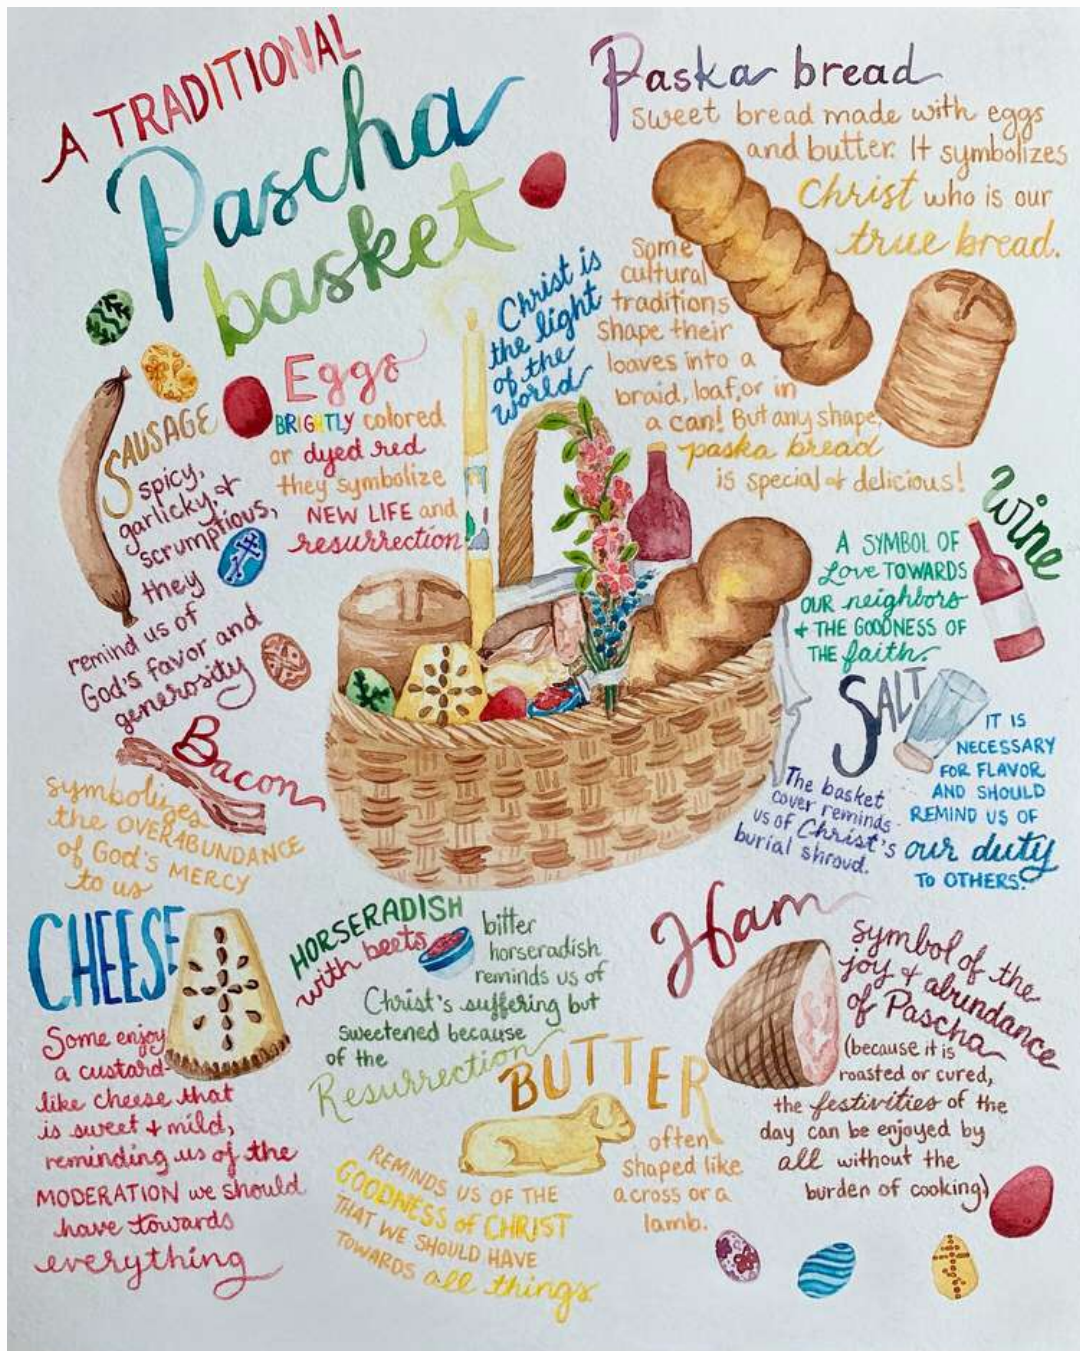 A TRADITIONAL
Pascha
basket
Paska bread
sweet bread made with eggs
and butter. It symbolizes
Christ who is our
true bread.
Some
cultural
traditions
shape their
loaves into a
braid, loaf, or in
a can! But any shape,
paska bread
is special & delicious!
Christ is
the light
of the
world
Eggs
BRIGHTLY colored
or dyed red
they symbolize
NEW LIFE and
resurrection
SAUSAGE
spicy,
garlicky, &
scrumptious,
they
remind us of
God's favor and
generosity
Wine
A SYMBOL OF
Love TOWARDS
OUR neighbors
+ THE GOODNESS OF
THE faith.
SALT
IT IS
NECESSARY
FOR FLAVOR
AND SHOULD
REMIND US OF
our duty
TO OTHERS.
The basket
cover reminds
us of Christ's
burial shroud.
Bacon
symbolizes
the OVERABUNDANCE
of God's MERCY
to us
CHEESE
Some enjoy
a custard-
like cheese that
is sweet & mild,
reminding us of the
MODERATION we should
have towards
everything
HORSERADISH
with beets
bitter
horseradish
reminds us of
Christ's suffering but
sweetened because
of the
Resurrection
BUTTER
often
shaped like
a cross or a
lamb.
REMINDS US OF THE
GOODNESS of CHRIST
THAT WE SHOULD HAVE
TOWARDS all things.
Ham
symbol of the
joy & abundance
of Pascha
(because it is
roasted or cured,
the festivities of the
day can be enjoyed by
all without the
burden of cooking)